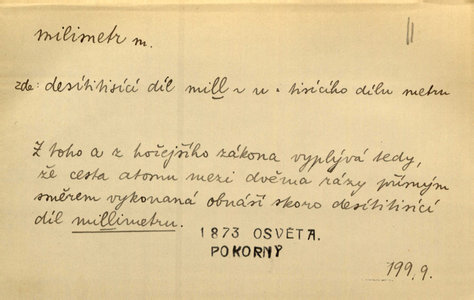 milimetr m.
11
zde: desítitisící díl mill
tisícího dílu metru
Z toho a z hořejšího zákona vyplývá tedy,
že cesta atomu mezi dvěma rázy přímým
směrem vykonaná obnáší skoro desítitisící
díl millimetru.
1873 OSVĚTA.
POKORNÝ
199,9.